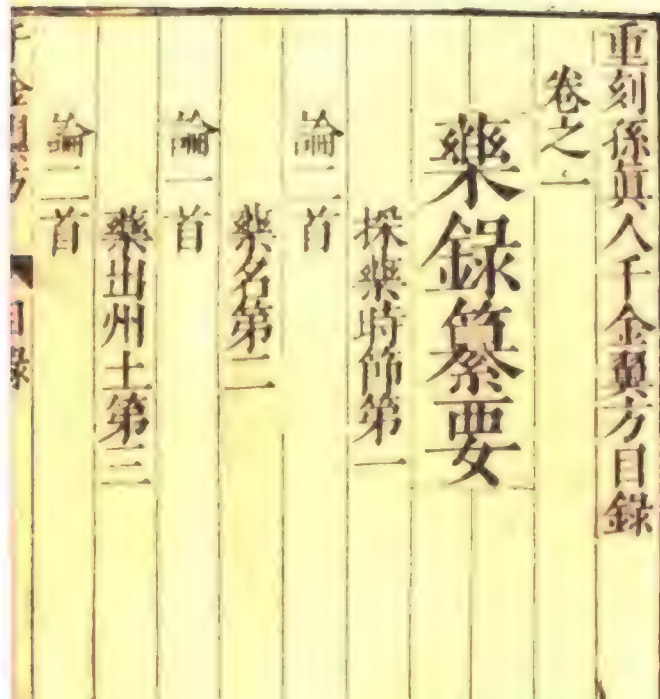 重刻孫眞人千金翼方目錄
卷之一
藥錄纂要
採藥時節第一
論二首
藥名第二
論一首
藥出州土第三
論二首
千金翼方 目錄